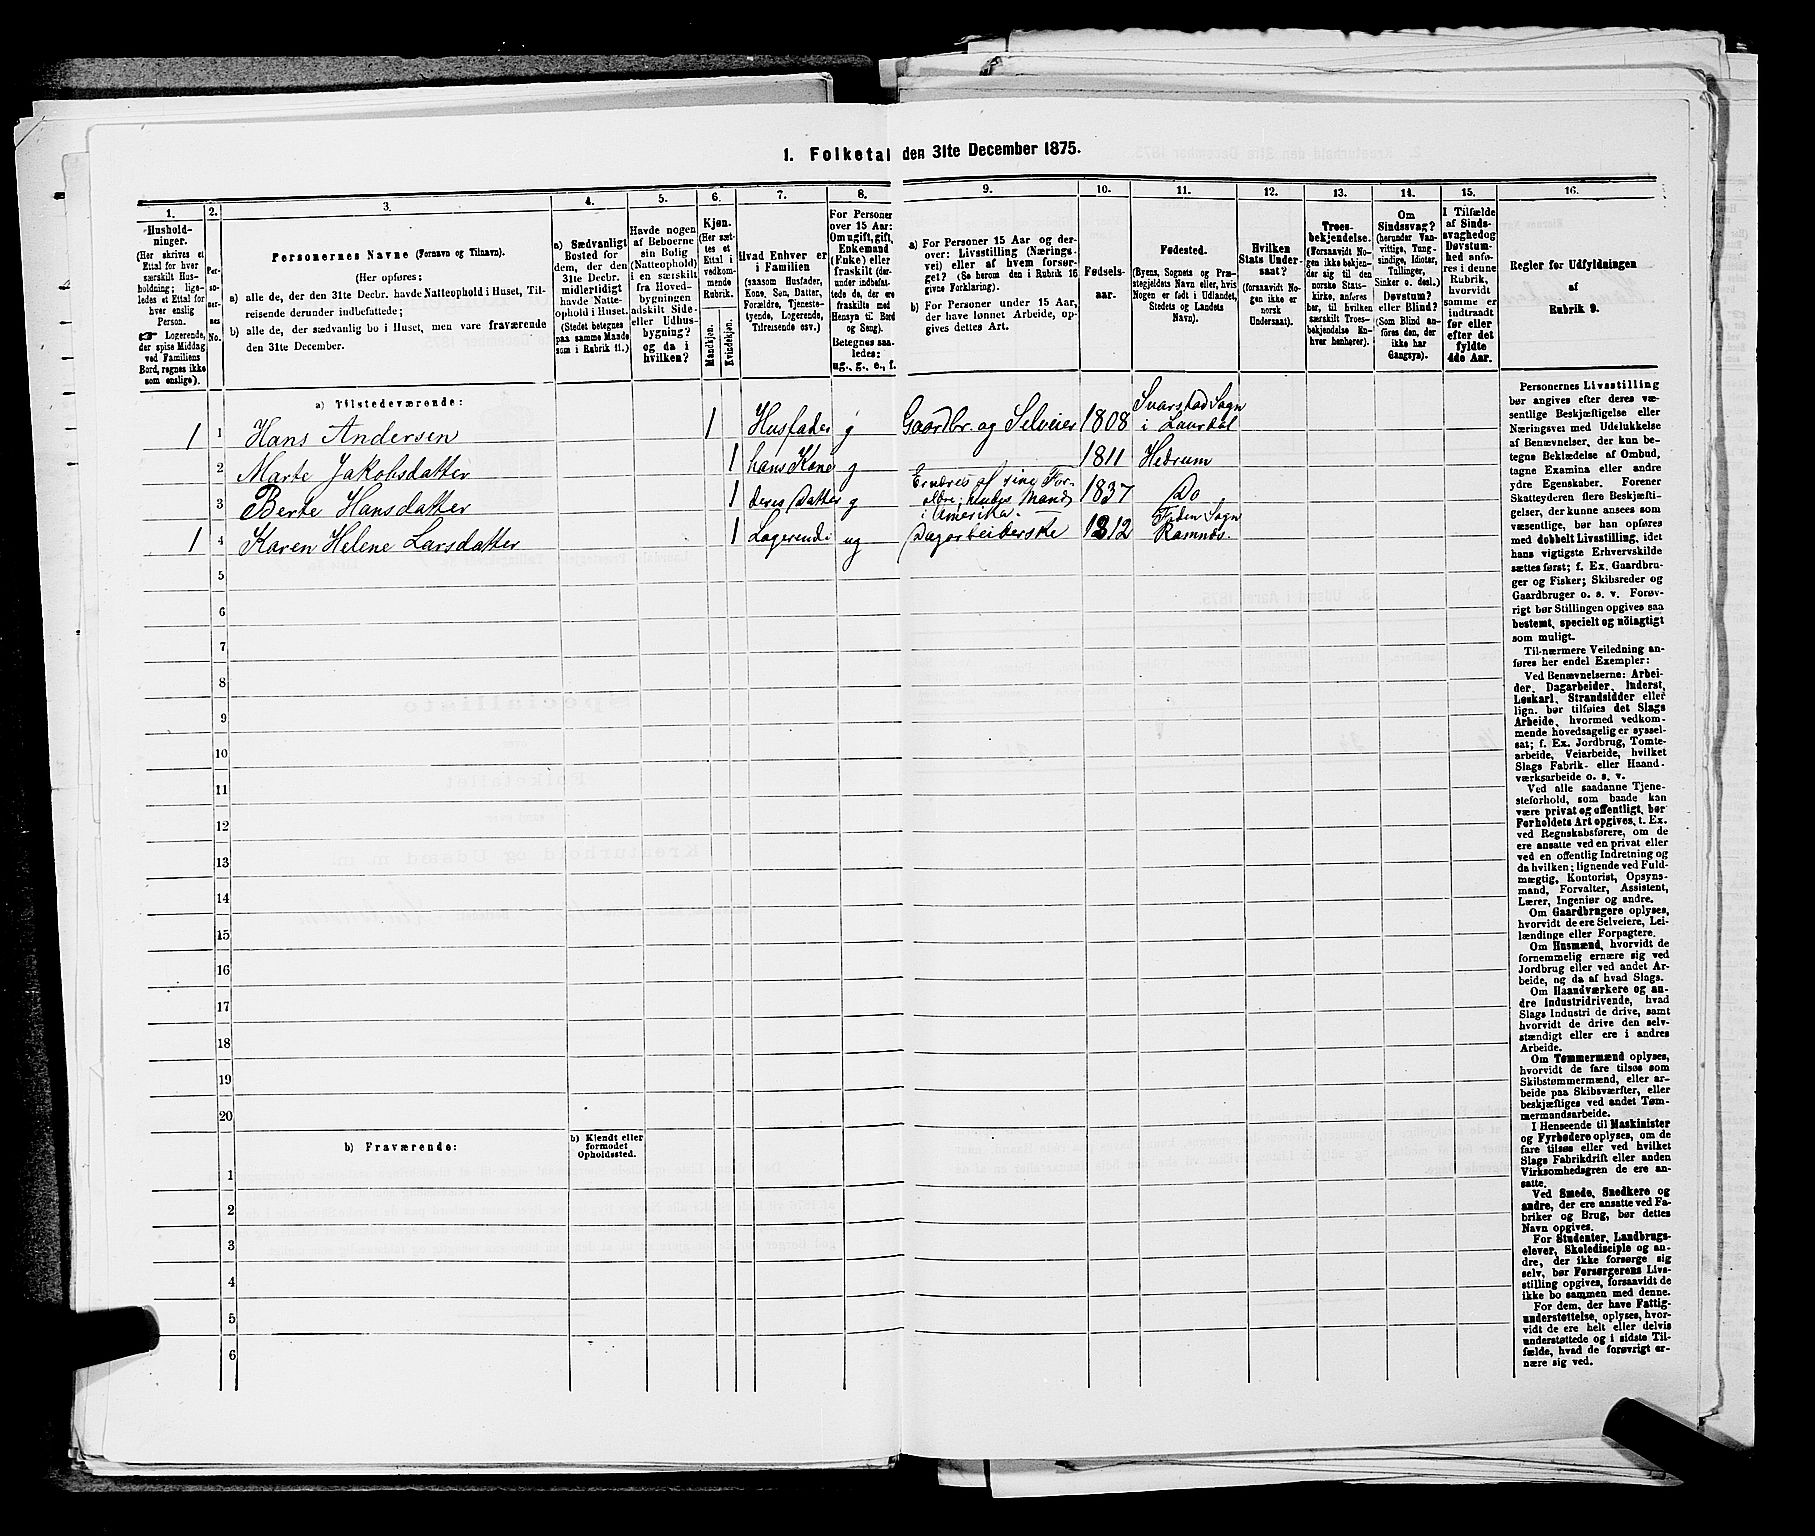 1. Folketal den 31te December 1875.
1.
2.
3.
4.
5.
6.
7.
8.
9.
10.
11.
12.
13.
14.
15.
16.
Hushold-
ninger.
(Her skrives et
Ettal for hver
særskilt Hus-
holdning; lige-
ledes et Ettal for
hver enslig
Person.
☞ Logerende,
der spise Middag
ved Familiens
Bord, regnes ikke
som enslige).
Per-
so-
ner-
nes
No.
Personernes Navne (Fornavn og Tilnavn).
(Her opføres:
a) alle de, der den 31te Decbr. havde Natteophold i Huset, Til-
reisende derunder indbefattede;
b) alle de, der sædvanlig bo i Huset, men vare fraværende
den 31te December.
a) Sædvanligt
Bosted for
dem, der den
31te Decbr.
midlertidigt
havde Natte-
ophold i Huset.
(Stedet betegnes
paa samme Maade
som i Rubrik 11.)
Havde nogen
af Beboerne
sin Bolig
(Natteophold)
i en særskilt
fra Hoved-
bygningen
adskilt Side-
eller Udhus-
bygning?
og da i
hvilken?
Kjøn.
(Her sæt-
tes et
Ettal i
vedkom-
mende
Rubrik.
Mandkjøn.
Kvindekjøn.
Hvad Enhver er
i Familien
(saasom Husfader,
Kone, Søn, Datter,
Forældre, Tjeneste-
tyende, Logerende,
Tilreisende osv.)
For Personer
over 15 Aar:
Om ugift, gift,
Enkemand
(Enke) eller
fraskilt (der-
under indbefat-
tede de, der ere
fraskilte med
Hensyn til Bord
og Seng).
Betegnes saa-
ledes:
ug., g., e., f.
a) For Personer 15 Aar og der-
over: Livsstilling (Nærings-
vei) eller af hvem forsør-
get? (Se herom den i Rubrik 16
givne Forklaring).
b) For Personer under 15 Aar,
der have lønnet Arbeide, op-
gives dettes Art.
Fødsels-
aar.
Fødested.
(Byens, Sognets og Præ-
stegjeldets Navn eller, hvis
Nogen er født i Udlandet,
Stedets og Landets
Navn).
Hvilken
Stats Under-
saat?
(forsaavidt No-
gen ikke er
norsk
Undersaat).
Troes-
bekjendelse.
(Forsaavidt No-
gen ikke bekjen-
der sig til den
norske Stats-
kirke, anføres
her, til hvilken
særskilt Troes-
bekjendelse En-
hver henhører).
Om
Sindssvag?
(herunder Van-
vittige, Tung-
sindige, Idioter,
Tullinger,
Sinker o. desl.)
Døvstum?
eller Blind?
(Som Blind an-
føres den, der
ikke har
Gangsyn).
I Tilfælde
af Sinds-
svaghed og
Døvstum-
hed anfø-
res i denne
Rubrik,
hvorvidt
samme er
indtraadt
før eller
efter det
fyldte
4de Aar.
Regler for Udfyldningen
af
Rubrik 9.
a) Tilstedeværende:
1 1 Hans Andersen 1 Husfader g Gaardbr. og Selveier 1808 Svarstad Sogn
i Laurdal
2 Marte Jakobsdatter 1 hans Kone g 1811 Hedrum
3 Berte Hansdatter 1 deres Datter g Ernæres af sine For-
ældre; hendes Mand
i Amerika. 1837 Do
1 4 Karen Helene Larsdatter 1 Logerende ug Dagarbeiderske 1812 Sogn
Ramnæs.
5
6
7
8
9
10
11
12
13
14
15
16
17
18
19
20
b) Fraværende:
b) Kjendt eller
formodet
Opholdssted.
1
2
3
4
5
6
Personernes Livsstilling
bør angives efter deres væ-
sentlige Beskjæftigelse eller
Næringsvei med Udelukkelse
af Benævnelser, der kun be-
tegne Beklædelse af Ombud,
tagne Examina eller andre
ydre Egenskaber. Forener
Skatteyderen flere Beskjæfti-
gelser, der kunne ansees som
væsentlige, bør han opføres
med dobbelt Livsstilling, idet
hans vigtigste Erhvervskilde
sættes først; f. Ex. Gaardbru-
ger og Fisker; Skibsreder og
Gaardbruger o. s. v. Forøv-
rigt bør Stillingen opgives saa
bestemt, specielt og nöiagtigt
som muligt.
Til nærmere Veiledning an-
føres her endel Exempler:
Ved Benævnelserne: Arbei-
der, Dagarbeider, Inderst,
Løskarl, Strandsidder eller
lign. bør tilføies det Slags
Arbeide, hvormed vedkom-
mende hovedsagelig er syssel-
sat; f. Ex. Jordbrug, Tomte-
arbeide, Veiarbeide, hvilket
Slags Fabrik- eller Haand-
værksarbeide o. s. v.
Ved alle saadanne Tjene-
steforhold, som baade kan
være privat og offentligt, bør
Forholdets Art opgives, t. Ex.
ved Regnskabsførere, om de
ere ansatte ved en privat eller
ved en offentlig Indretning og
da hvilken; lignende ved Fuld-
mægtig, Kontorist, Opsyns-
mand, Forvalter, Assistent,
Lærer, Ingeniør og andre.
Om Gaardbrugere oplyses,
hvorvidt de ere Selveiere, Lei-
lændinge eller Forpagtere.
Om Husmænd, hvorvidt de
fornemmelig ernære sig ved
Jordbrug eller ved andet Ar-
beide, og da af hvad Slags.
Om Haandværkere og an-
dre Industridrivende, hvad
Slags Industri de drive, samt
hvorvidt de drive den selv-
stændigt eller ere i andres
Arbeide.
Om Tømmermænd oplyses,
hvorvidt de fare tilsøs som
Skibstømmermænd, eller ar-
beide paa Skibsværfter, eller
beskjæftiges ved andet Tøm-
mermandsarbeide.
I Henseende til Maskinister
og Fyrbødere oplyses, om de
fare tilsøs eller ved hvilket
Slags Fabrikdrift eller anden
Virksomhedsgren de ere an-
satte.
Ved Smede, Snedkere og
andre, der ere ansatte ved Fa-
briker og Brug, bør dettes
Navn opgives.
For Studenter, Landbrugs-
elever, Skoledisciple og an-
dre, der ikke forsørge sig
selv, bør Forsørgerens Livs-
stilling opgives, forsaavidt de
ikke bo sammen med denne.
For dem, der have Fattig-
understøttelse, oplyses, hvor-
vidt de ere helt eller delvis
understøttede og i sidste Til-
fælde, hvad de forøvrigt er-
nære sig ved.